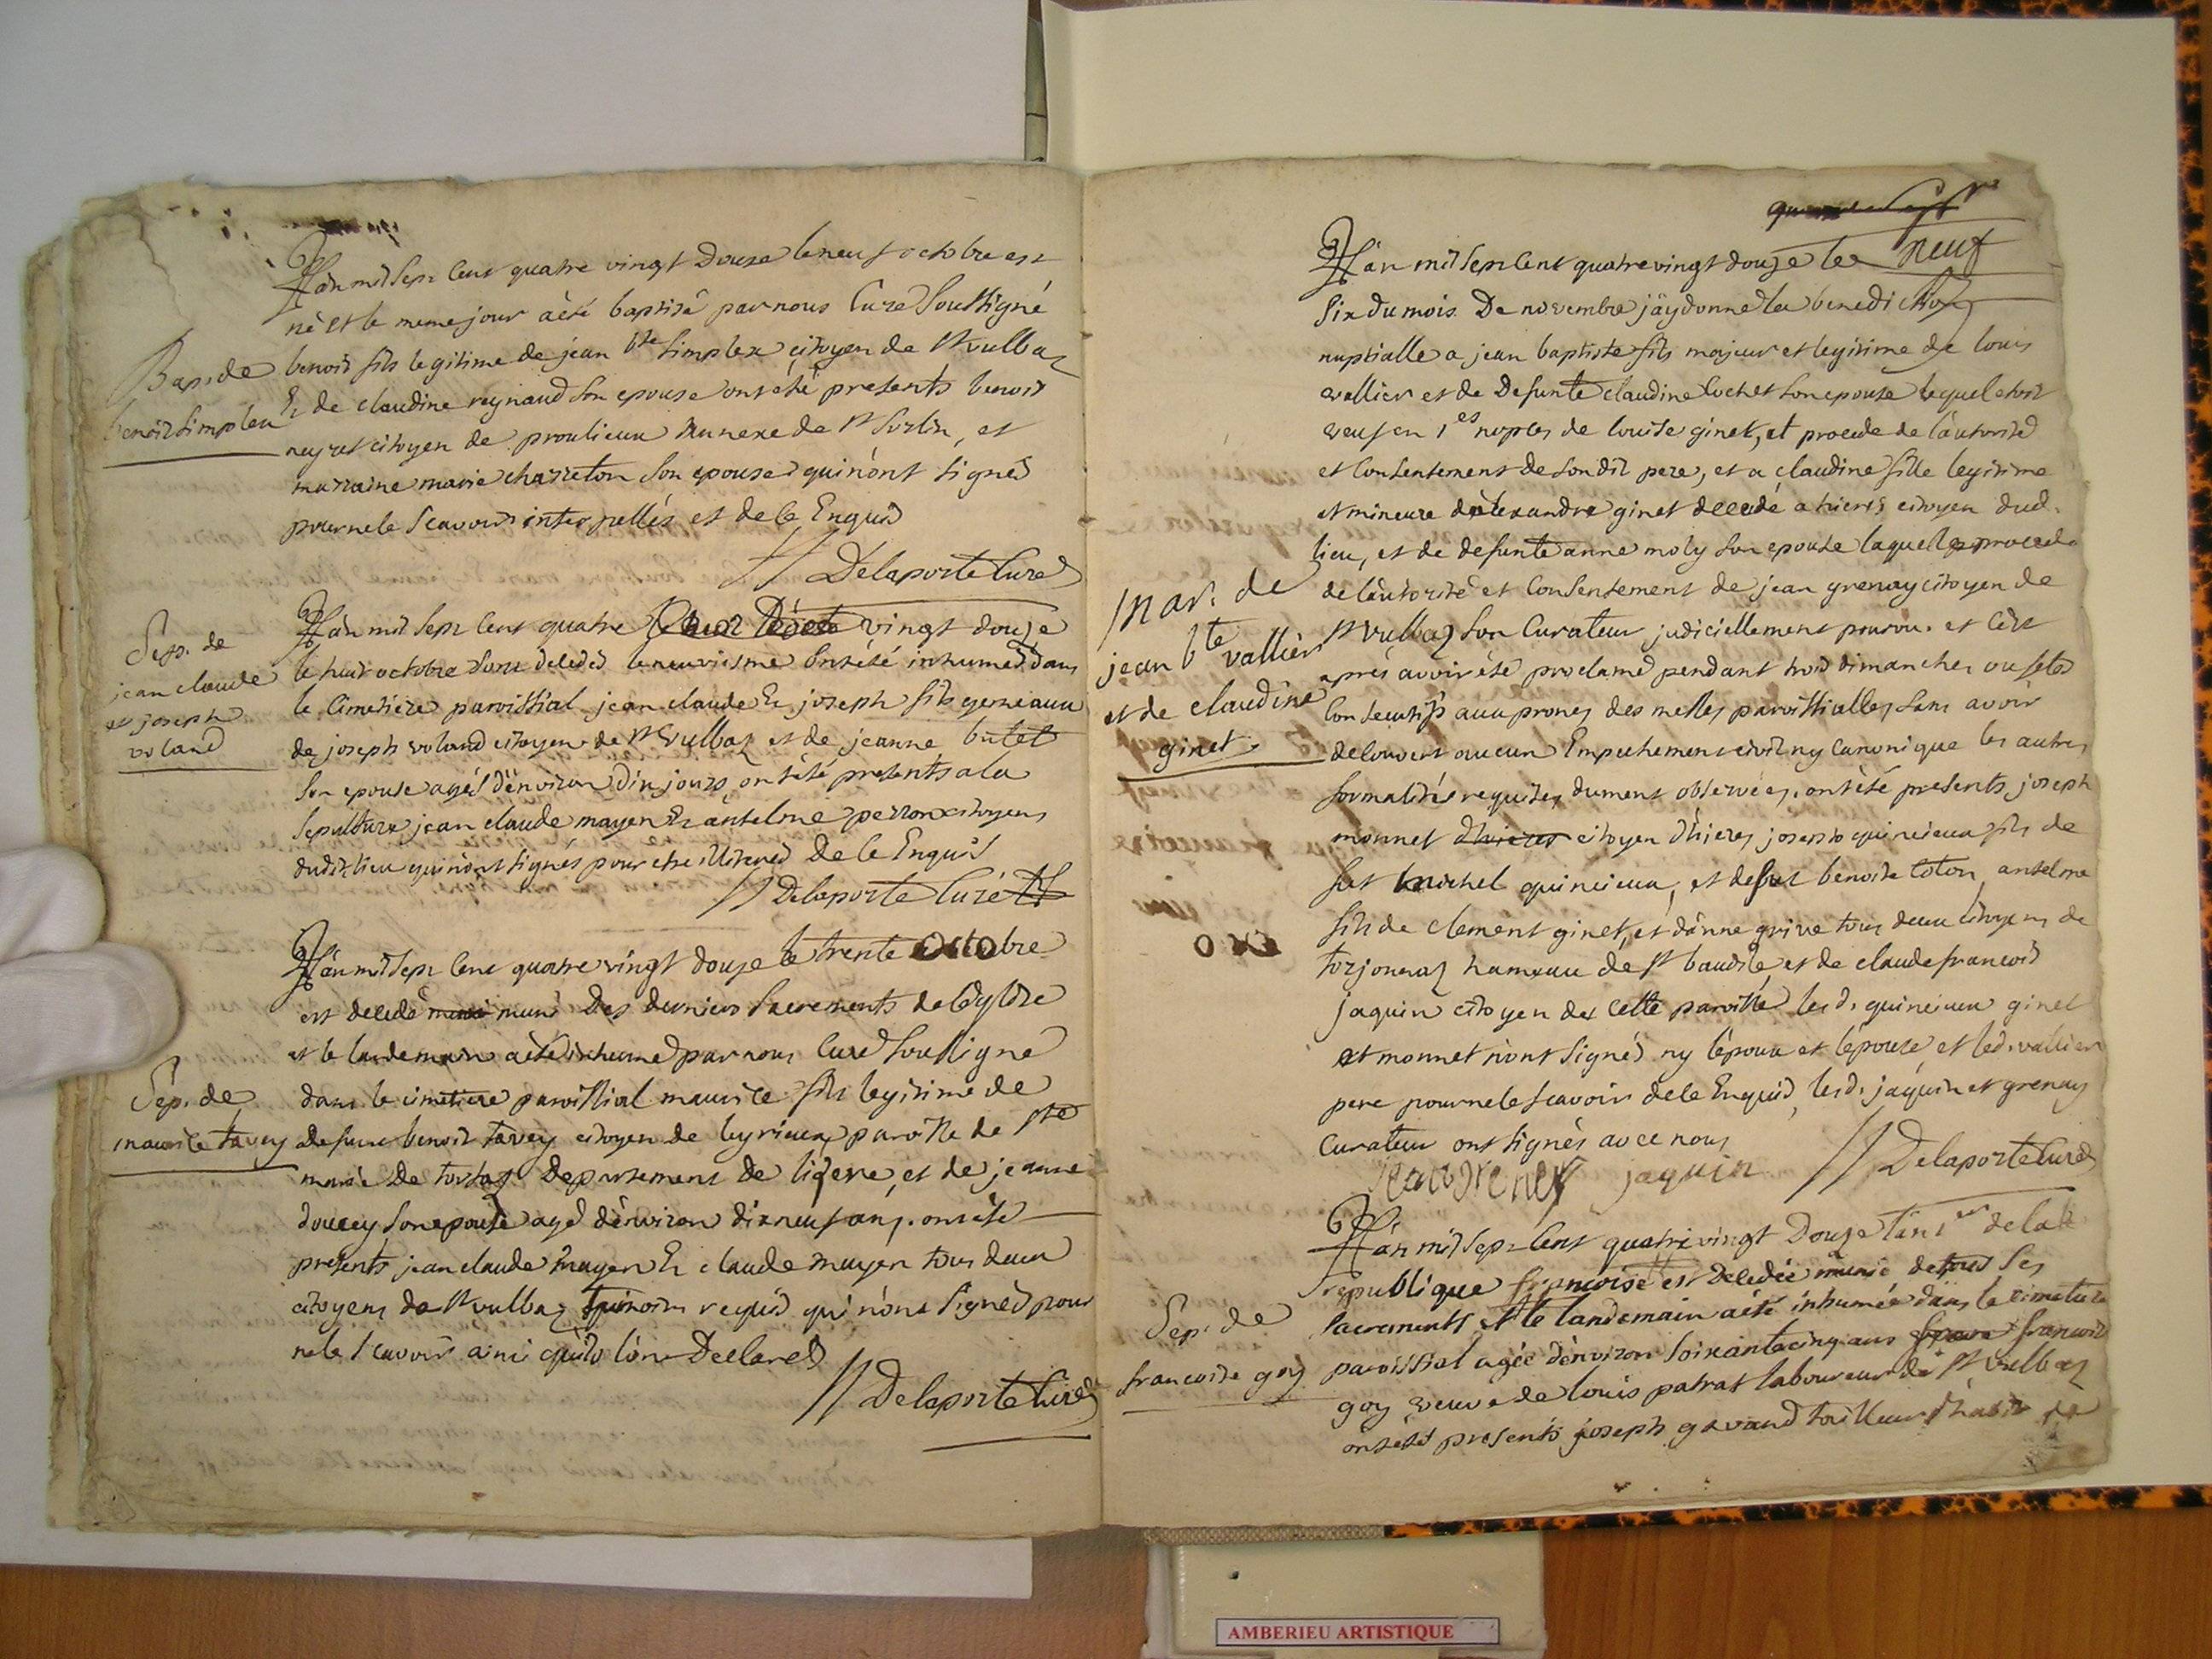 Lan mil sept cent quatre vingt douze le neuf octobre est
né et le meme jour a èté baptisé par nous Curé Soussigné
Bap. de
benoit simplex
benoit fils legitime de jean bte simplex citoyen de St vulbaz
Et de claudine reynaud son epouse ont èté presents benoit
neyret citoyen de proulieux Annexe de St Sorlin, et
marraine marie charreton son epouse qui n'ont signés
pour ne le scavoir interpellés et de ce Enquis
Delaporte Curé
Sep. de
jean claude
et joseph
voland
Lan mil sept cent quatre vingt douze
le huit octobre sont decedés le neuvieme ont èté inhumés dans
le Cimetière paroissial jean claude Et joseph fils gemeaux
de joseph voland citoyen de St Vulbaz et de jeanne butet
son epouse agés d'environ dix jours, ont èté presents a la
sepulture jean claude mayen Et antelme perron citoyens
dudit lieu qui n'ont signés pour etre illiterés De ce Enquis
Delaporte Curé
Lan mil sept cent quatre vingt douze le trente Octobre
est decedé muni Des derniers Sacrements de l'eglise
et le landemain a èté inhumé par nous Curé soussigné
Sep. de
maurice tavey
dans le cimetiere paroissial maurice fils legitime de
defunt benoit tavey citoyen de leyrieux paroisse de Ste
marie de tortas Departement de lisere, et de jeanne
doucey son epouse agé d'environ dix neuf ans. ont èté
presents jean claude mayen Et claude mayen tous deux
citoyens de St vulbaz temoins requis qui n'ont signés pour
ne le scavoir ainsi quils l'ont Declaré
Delaporte Curé
Lan mil sept cent quatre vingt douze le neuf
six du mois De novembre jäy donné la benediction
nuptialle a jean baptiste fils majeur et legitime de louis
vallier et de Defunte claudine cochet son epouse lequel etoit
veuf en 1es nopces de louise ginet, et procede de l'autorité
et Consentement de son dit pere, et a claudine fille legitime
et mineure d'alexandre ginet decedé a hieres citoyen dud.
lieu, et de defunte anne moly son epouse laquelle procede
Mar. de
jean bte vallier
et de claudine
ginet
de l'autorité et Consentement de jean grenay citoyen de
St Vulbaz son Curateur judiciellement pourvu. et cèst
aprés avoir èté proclamé pendant trois dimanches ou fetes
Consecutifs aux prones des messes paroissialles sans avoir
decouvert aucun Empechement civil ny Canonique les autres
formalités requises dument observées. ont èté presents joseph
monnet citoyen d'hieres joseph quincieux fils de
feu michel quincieux, et defunt benoite coton, antelme
fils de clement ginet, et d'anne grive tous deux citoyens de
torjonas hameau de St baudile, et de claude francois
jaquin citoyen de cette paroisse les d. quincieux ginet
et monnet n'ont signés ny l'époux et l'épouse et led. vallier
pere pour ne le scavoir de ce Enquis, les d. jaquin et grenay
Curateur ont signés avec nous
jean grenay jaquin Delaporte Curé
Lan mil sept cent quatre vingt Douze l'an 1er de la
republique françoise est Decedée munie de tous ses
Sep. de
francoise goy
sacrements et le landemain a èté inhumée dans le cimetiere
paroissial agée d'environ soixante cinq ans francoise
goy veuve de louis patrat laboureur de St Vulbaz
ont èté presents joseph gavand tailleur d'habit de
AMBERIEU ARTISTIQUE